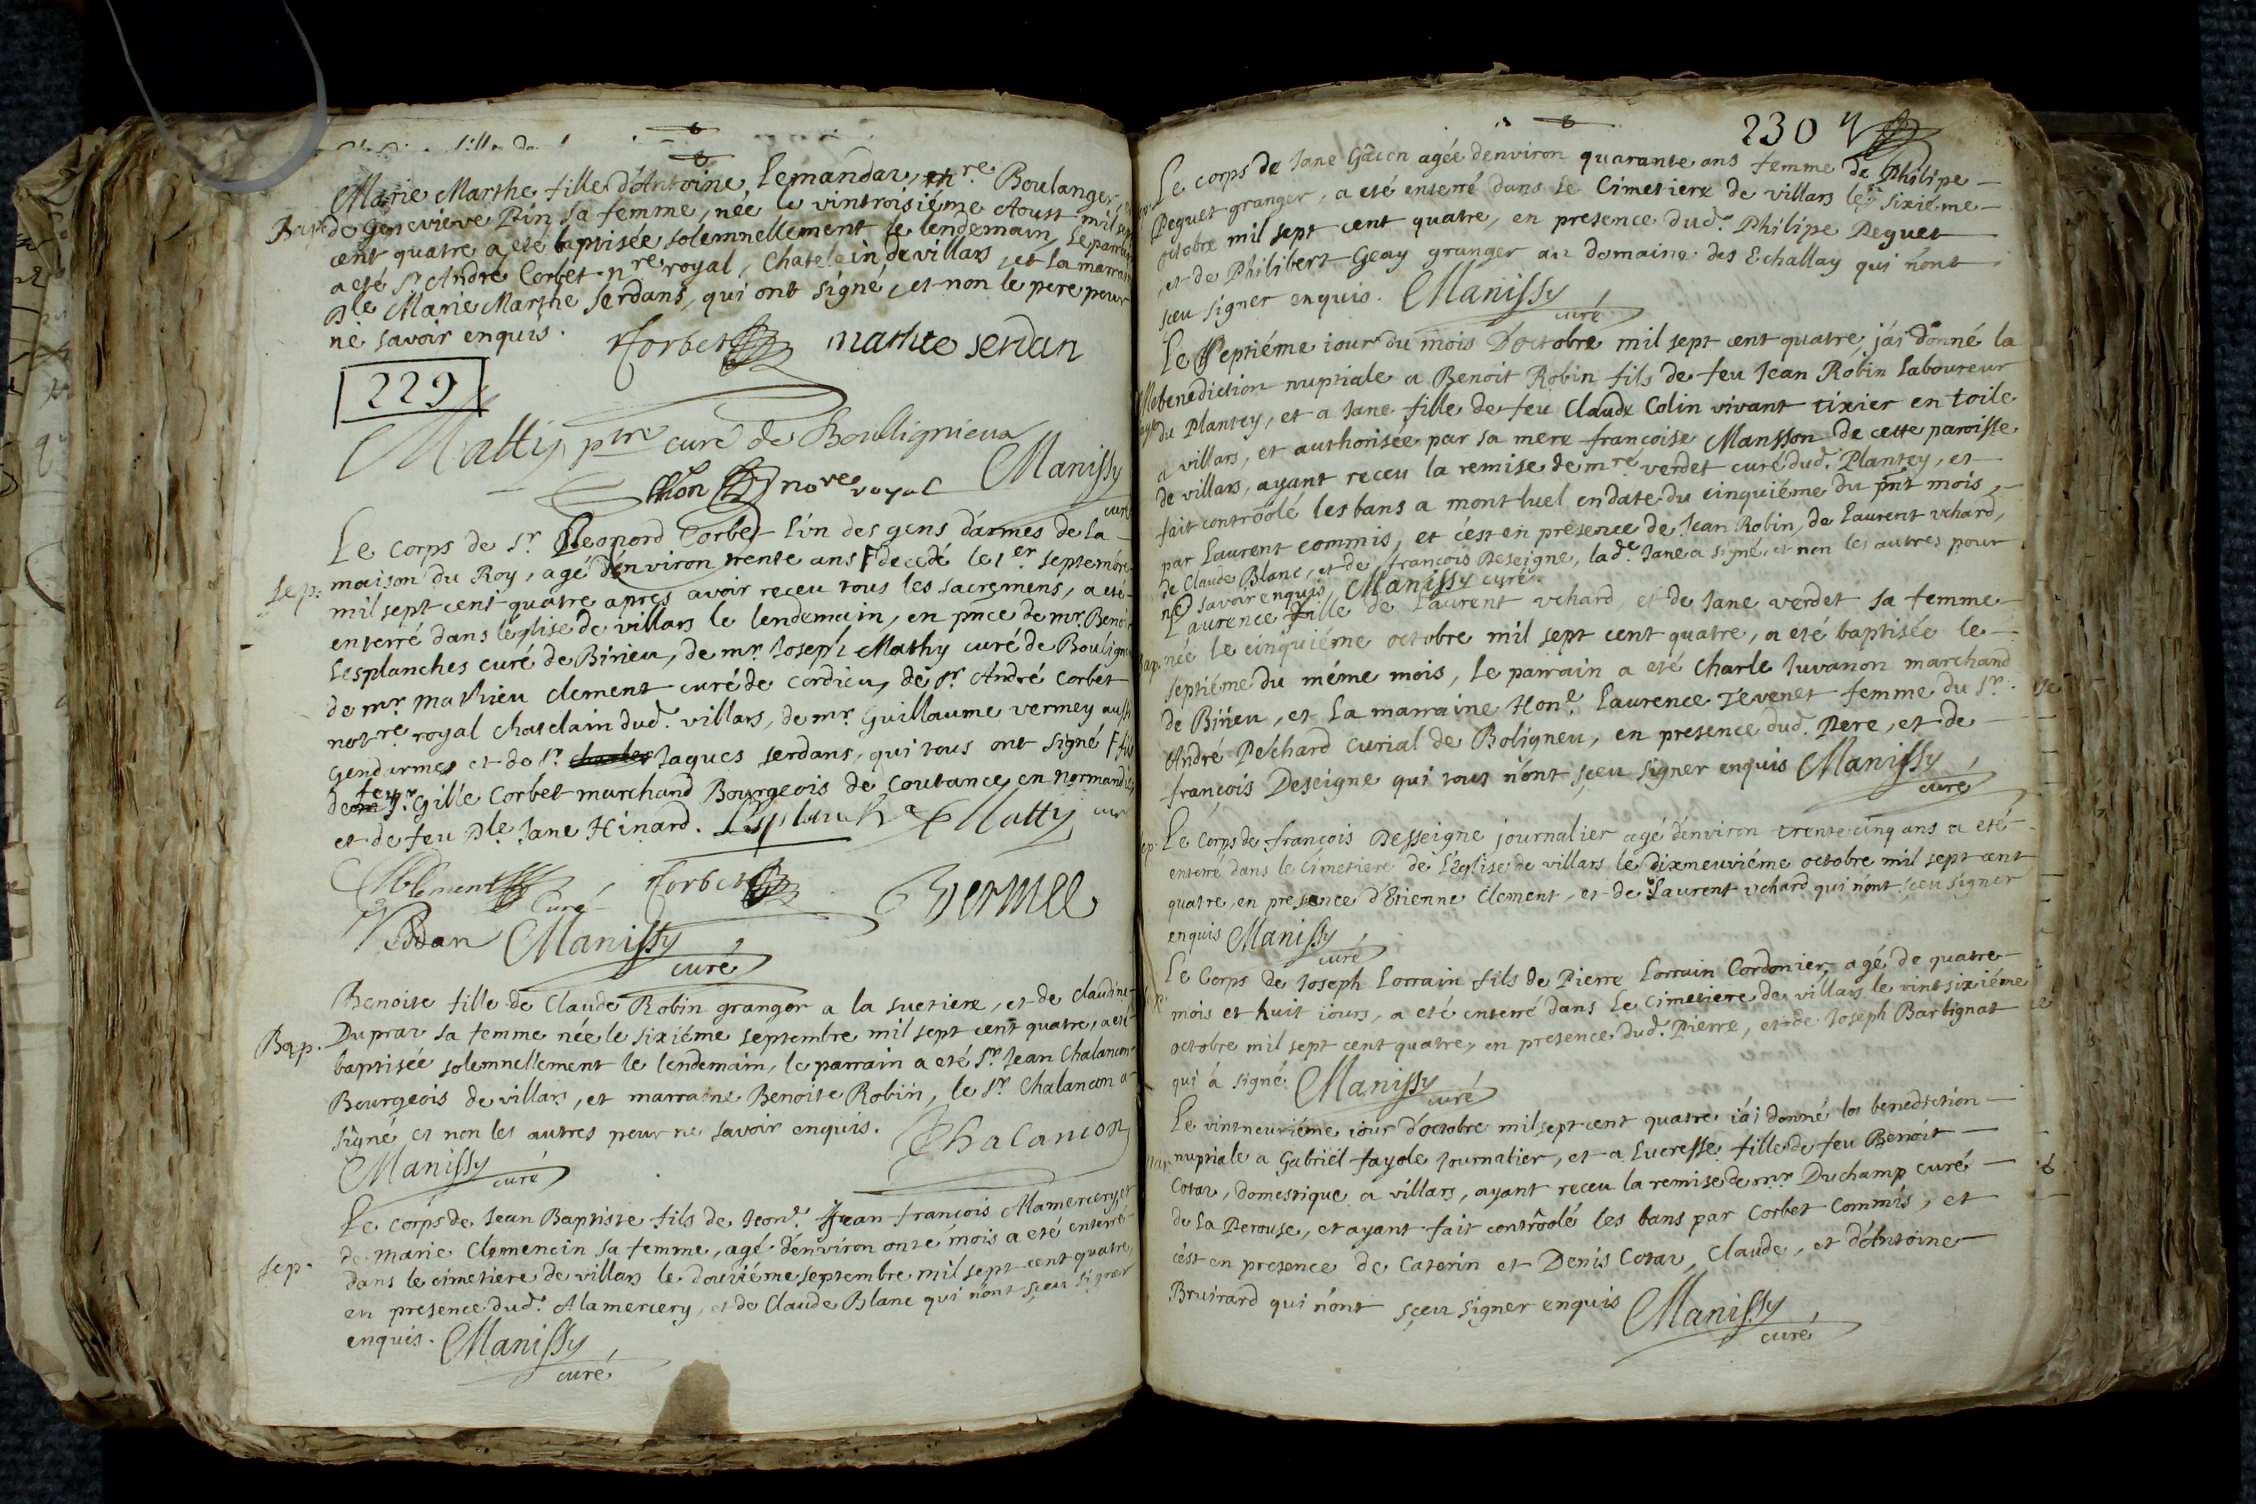 Marie Marthe fille d'Antoine Lemandar, mre Boulanger,
Bap. de Genevieve Pin sa femme, née le vintroisiéme Aoust mil sept
cent quatre a eté baptisée solemnellement le lendemain, le parrain
a eté Sr André Corbet nre royal, Chatelain de villars, et la marraine
Dle Marie Marthe Serdans, qui ont signé, et non le pere pour
ne savoir enquis. Corbet marthe serdan
229
Matty ptre curé de Boulligneux
nore royal Manissy
curé
Le corps de Sr. Leonord Corbet l'un des gens d'armes de la
Sep. maison du Roy, agé d'environ trente ans F decedé le 1er septembre
mil sept cent quatre apres avoir receu tous les sacremens, a eté
enterré dans l'église de villars le lendemain, en pnce de mr. Benoit
Lesplanches curé de Birieu, de mr. Joseph Mathy curé de Bouligneu
de mr mathieu clement curé de cordieu, de Sr. André Corbet
notre royal chatelain dud. villars, de mr. Guillaume vermey aussi
gendarme, et de Sr. charles Jaques serdans, qui tous ont signé F fils
de feu Sr. Gille Corbet marchand Bourgeois de Coutance en normandie
et de feu Dle Jane Hinard. Lesplanche Matty curé
Clement curé Corbet Vermee
Serdan Manissy
curé
Benoite fille de Claude Robin granger a la suetiere, et de Claudine
Bap. Duprar sa femme née le sixiéme septembre mil sept cent quatre, a eté
baptisée solemnellement le lendemain, le parrain a eté Sr. Jean Chalancon
Bourgeois de villars, et marraine Benoite Robin, le Sr. Chalancon a
signé et non les autres pour ne savoir enquis. Chalancon
Manissy curé
Le corps de Jean Baptiste fils de hon. Jean françois Alamercery, et
de marie Clemencin sa femme, agé d'environ onze mois a eté enterré
Sep. dans le cimetiere de villars le douziéme septembre mil sept cent quatre,
en presence dud. Alamercery, et de Claude Blanc qui n'ont sçeu signer
enquis. Manissy
curé
230
Le corps de Jane Gacon agée d'environ quarante ans femme de Philipe
Peguet granger, a eté enterré dans le Cimetiere de villars le sixiéme
octobre mil sept cent quatre, en presence dud. Philipe Peguet
et de Philibert Geay granger au domaine des Echallay qui n'ont
sceu signer enquis. Manissy
curé
Le septiéme iour du mois d'octobre mil sept cent quatre, j'ai donné la
benediction nuptiale a Benoit Robin fils de feu Jean Robin Laboureur
du Plantey, et a Jane fille de feu Claude Colin vivant tixier en toile
a villars, et authorisée par sa mere françoise Mansson de cette paroisse
de villars, ayant receu la remise de mre verdet curé dud. Plantey, et
fait contrôolé les bans a montluel en date du cinquiéme du pnt mois,
par Laurent commis, et c'est en presence de Jean Robin, de Laurent vchard,
de Claude Blanc, et de françois Deseigne, lade Jane a signé et non les autres pour
ne savoir enquis, Manissy curé.
Laurence fille de Laurent vchard, et de Jane verdet sa femme
Bap. née le cinquiéme octobre mil sept cent quatre, a eté baptisée le
septiéme du méme mois, le parrain a eté Charle Juvanon marchand
de Birieu, et la marraine Hone. Laurence Tevenet femme du Sr.
André Pelchard Curial de Boligneu, en presence dud. Pere, et de
françois Deseigne qui tous n'ont sçeu signer enquis Manissy
curé
Sep. Le Corps de françois Desseigne journalier agé d'environ trente cinq ans a eté
enteré dans le Cimetiere de l'Eglise de villars le dixneuviéme octobre mil sept cent
quatre, en presence d'Etienne Clement, et de Laurent vchard qui n'ont sçeu signer
enquis Manissy
curé
Le Corps de Joseph Lorrain fils de Pierre Lorrain Cordonier, agé de quatre
mois et huit iours, a eté enterré dans le Cimetiere de villars le vintsixiéme
octobre mil sept cent quatre, en presence dud. Pierre, et de Joseph Barbignat
qui à signé. Manissy
curé
Le vintneuviéme iour d'octobre mil sept cent quatre i'ai donné la benediction
Mar. nuptiale a Gabriel fayole Journalier, et a Lucresse fille de feu Benoit
Cotar, domestique a villars, ayant receu la remise de mr. Duchamp curé
de La Perouse, et ayant fait contrôolé les bans par Corbet Commis, et
c'est en presence de Caterin et Denis Cotar, Claude, et d'Antoine
Bruirard qui n'ont sçeu signer enquis Manissy
curé